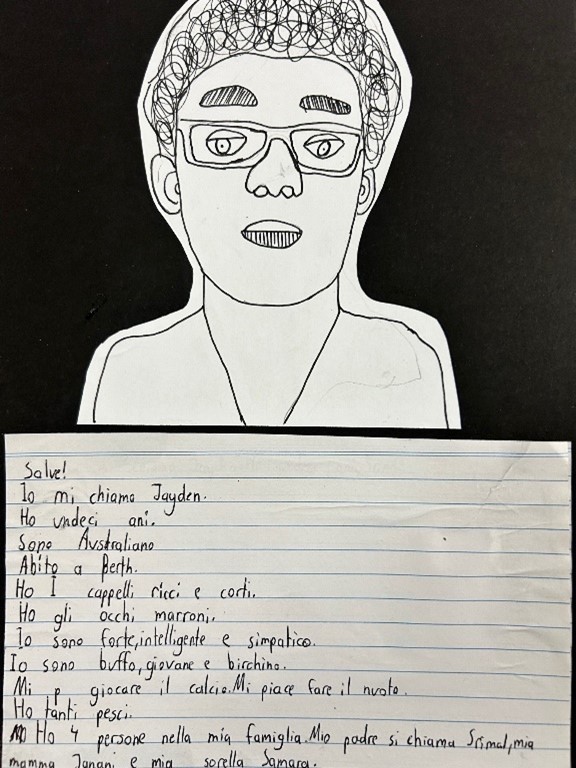 Salve!
Io mi chiamo Jayden.
Ho undeci ani.
Sono Australiano
Abito a Perth.
Ho I cappelli ricci e corti.
Ho gli occhi marroni.
Io sono forte,intelligente e simpatico.
Io sono buffo,giovane e birchino.
Mi p giocare il calcio.Mi piace fare il nuoto.
Ho tanti pesci.
Ho 4 persone nella mia famiglia.Mio padre si chiama Srimal,mia
mamma Janani e mia sorella Samara.